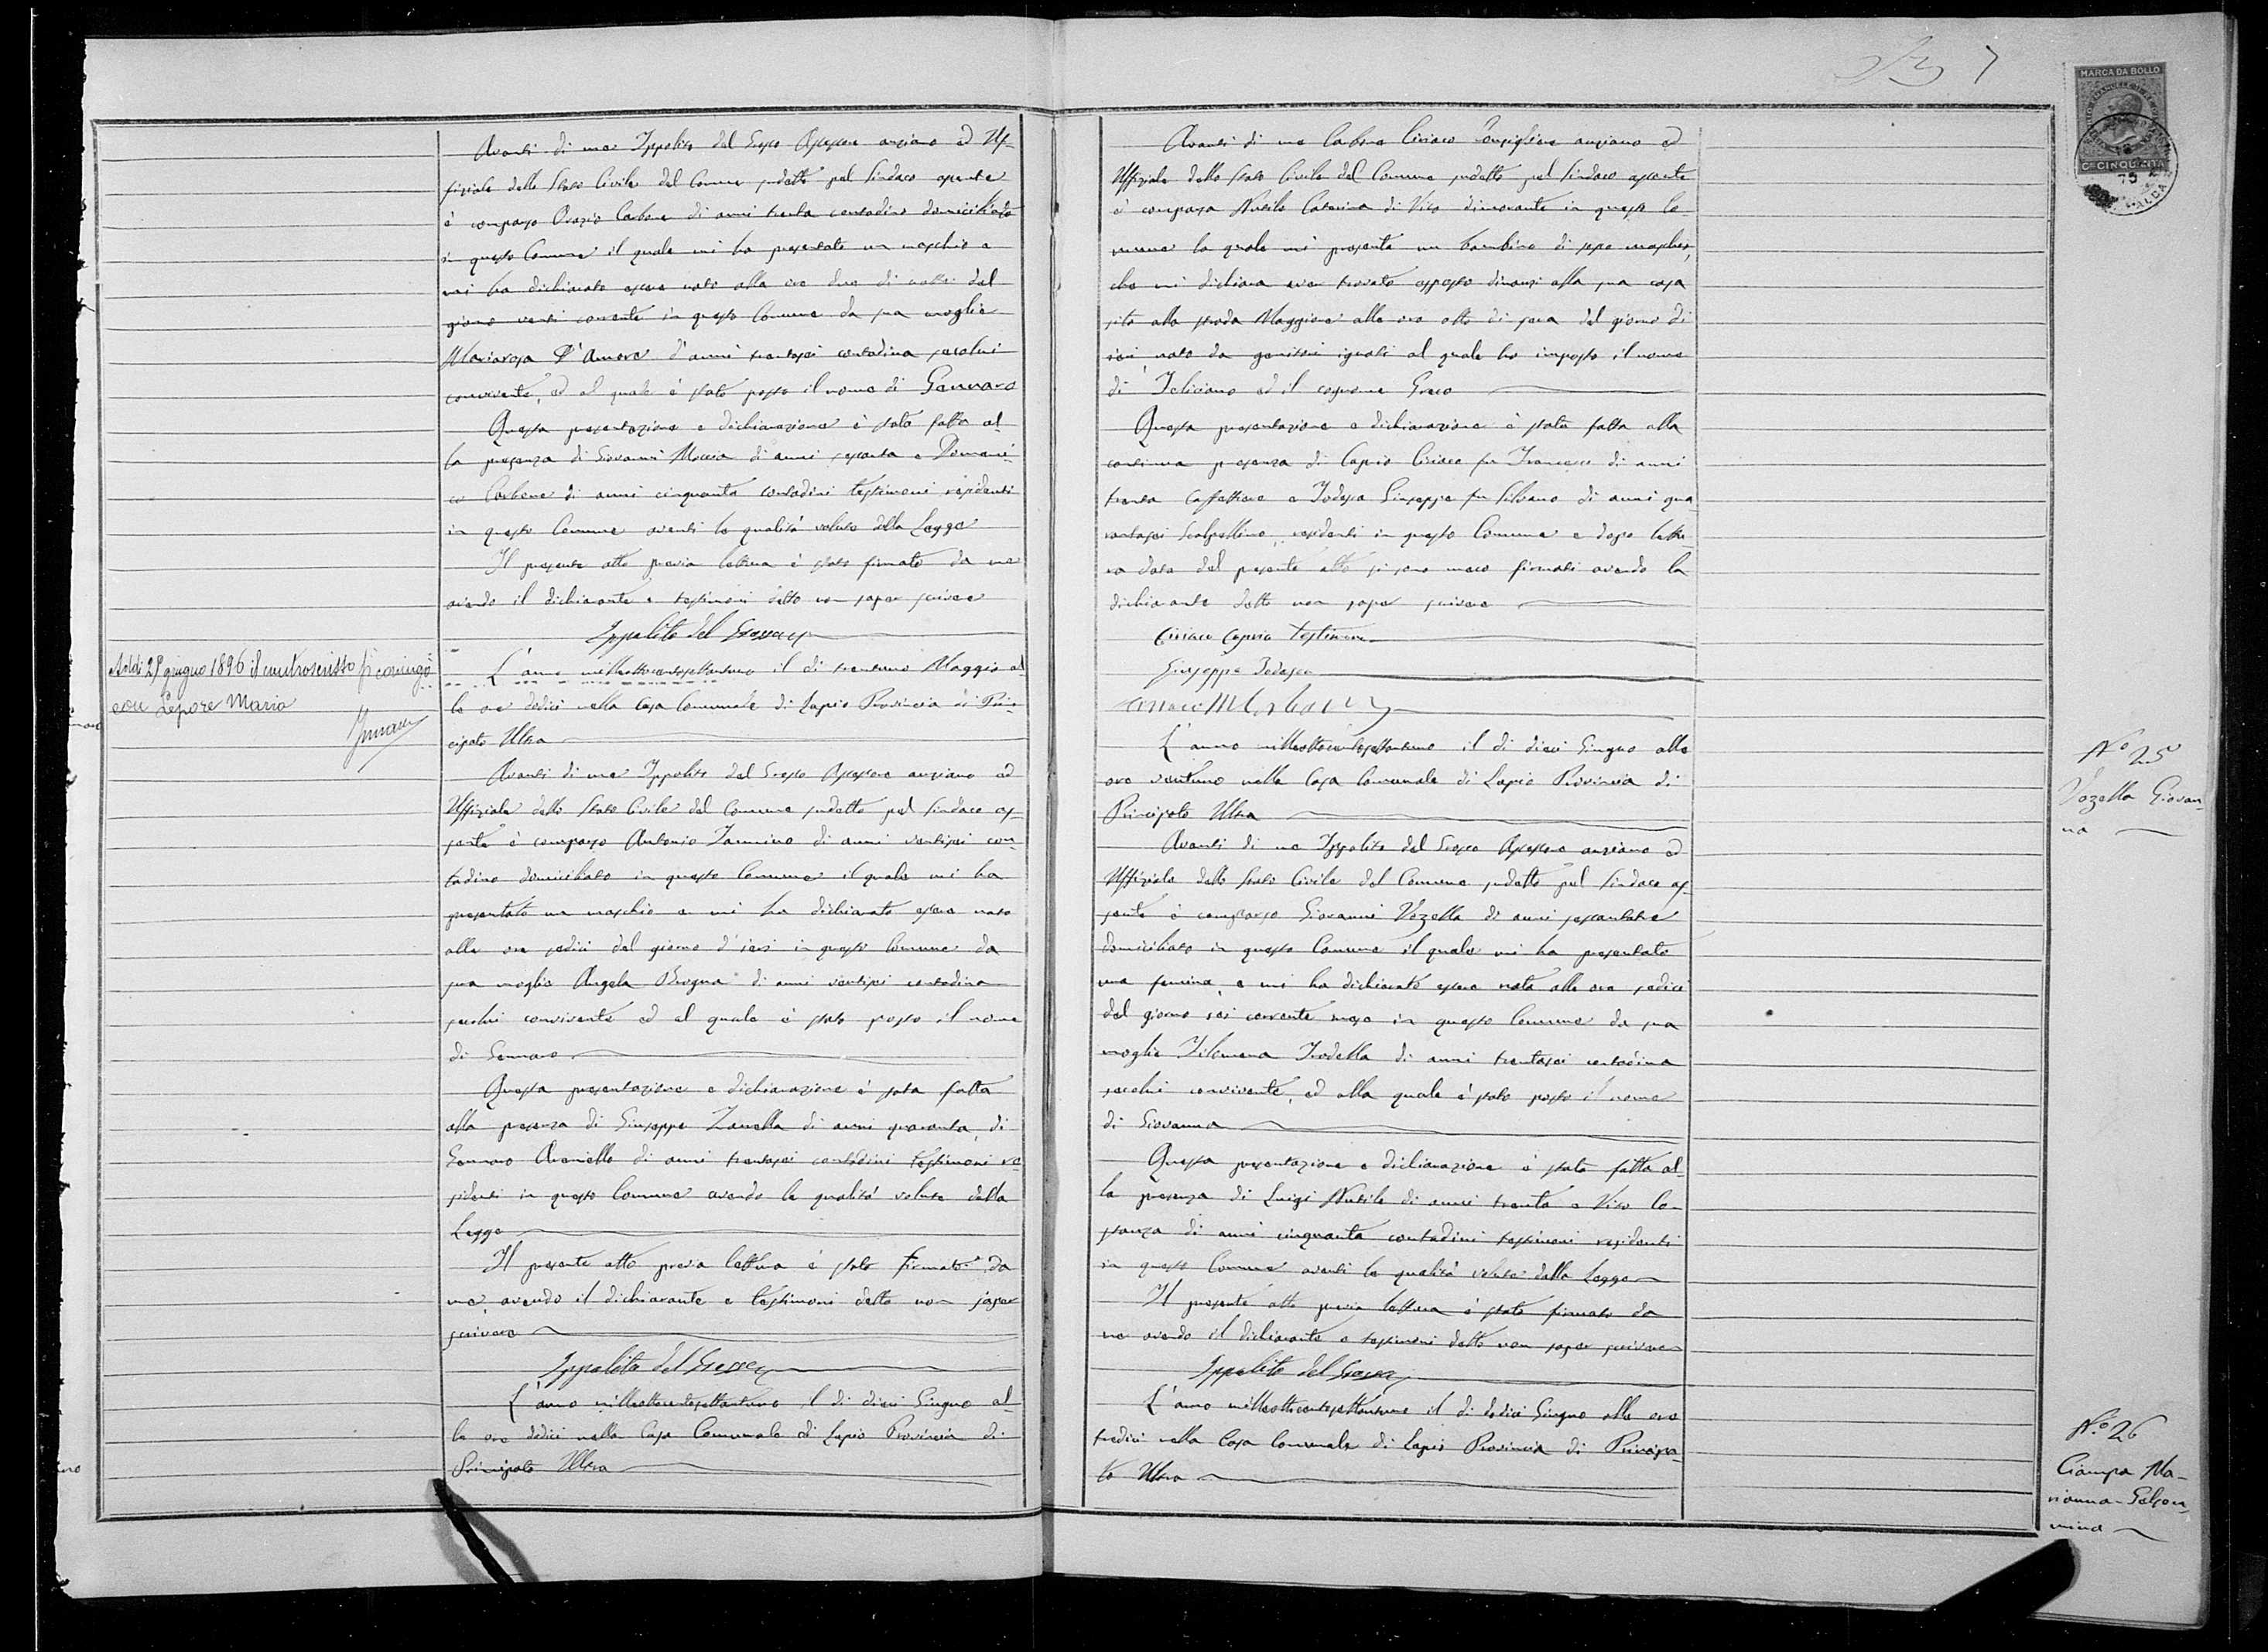 Avanti di me Ippolito del Grosso Assessore anziano ed Uf-
fiziale dello Stato Civile del Comune sudetto pel Sindaco assente
è comparso Orazio Carbone di anni trenta contadino domiciliato
in questo Comune il quale mi ha presentato un maschio e
mi ha dichiarato essere nato alle ore due di notte del
giorno venti corrente in questo Comune da sua moglie
Mariarosa D'Amore d'anni trentasei contadina secolui
convivente, ed al quale è stato posto il nome di Gennaro
Questa presentazione e dichiarazione è stata fatta al-
la presenza di Giovanni Moccia di anni sessanta e Domeni-
co Carbone di anni cinquanta contadini testimoni residenti
in questo Comune aventi le qualità volute dalla Legge
Il presente atto previa lettura è stato firmato da me
avendo il dichiarante e testimoni detto non saper scrivere
Ippolito del Grosso
Addì 29 giugno 1896 il controscritto si coniugò
con Lepore Maria
L'anno milleottocentosettantuno il dì trentuno Maggio al-
le ore dodici nella Casa Comunale di Lapio Provincia di Prin-
cipato Ultra
Avanti di me Ippolito del Grosso Assessore anziano ed
Uffiziale dello Stato Civile del Comune sudetto pel Sindaco as-
sente è comparso Antonio Iannino di anni ventisei con-
tadino domiciliato in questo Comune il quale mi ha
presentato un maschio e mi ha dichiarato essere nato
alle ore sedici del giorno d'ieri in questo Comune da
sua moglie Angela Brogna di anni ventisei contadina
secolui convivente ed al quale è stato posto il nome
di Gennaro
Questa presentazione e dichiarazione è stata fatta
alla presenza di Giuseppe Zarrella di anni quaranta, di
Gennaro di anni trentasei contadini testimoni re-
sidenti in questo Comune avendo le qualità volute dalla
Legge
Il presente atto previa lettura è stato firmato da
me, avendo il dichiarante e testimoni detto non saper
scrivere
Ippolito del Grosso
L'anno milleottocentosettantuno il dì dieci Giugno al-
le ore dodici nella Casa Comunale di Lapio Provincia di
Principato Ultra
7
MARCA DA BOLLO
Cⁱ CINQUANTA
Avanti di me Carbone Ciriaco Consigliere anziano ed
Uffiziale dello Stato Civile del Comune sudetto pel Sindaco assente
è comparsa Musilo Caterina di Vito dimorante in questo Co-
mune la quale mi presenta un bambino di sesso maschio,
che mi dichiara aver trovato esposto dinanzi alla sua casa
sita alla strada Maggiore alle ore otto di sera del giorno di
ieri nato da genitori ignoti al quale ho imposto il nome
di Feliciano ed il cognome Greco
Questa presentazione e dichiarazione è stata fatta alla
continua presenza di Caprio Ciriaco fu Francesco di anni
trenta Caffettiere e Todesca Giuseppe fu Silvano di anni qua
rantasei Scalpellino, residenti in questo Comune e dopo lettu-
ra data del presente atto si sono meco firmati avendo la
dichiarante detto non saper scrivere
Ciriaco Caprio Testimone
Giuseppe Todesca
L'anno milleottocentosettantuno il dì dieci Giugno alle
ore ventuno nella Casa Comunale di Lapio Provincia di
Principato Ultra
Nº 25
Vozella Giovan-
na
Avanti di me Ippolito del Grosso Assessore anziano ed
Uffiziale dello Stato Civile del Comune sudetto pel Sindaco as-
sente è comparso Giovanni Vozella di anni sessantatre
domiciliato in questo Comune il quale mi ha presentato
una femina, e mi ha dichiarato essere nata alle ore sedici
del giorno sei corrente mese in questo Comune da sua
moglie Filomena Trodella di anni trentasei contadina
secolui convivente, ed alla quale è stato posto il nome
di Giovanna
Questa presentazione e dichiarazione è stata fatta al-
la presenza di Luigi Musilo di anni trenta e Vito Co-
stanza di anni cinquanta contadini testimoni residenti
in questo Comune aventi le qualità volute dalla Legge
Il presente atto previa lettura è stato firmato da
me avendo il dichiarante e testimoni detto non saper scrivere
Ippolito del Grosso
L'anno milleottocentosettantuno il dì dodici Giugno alle ore
tredici nella Casa Comunale di Lapio Provincia di Principa-
to Ultra
Nº 26
Ciampa Ma-
rianna-Gelson-
mina